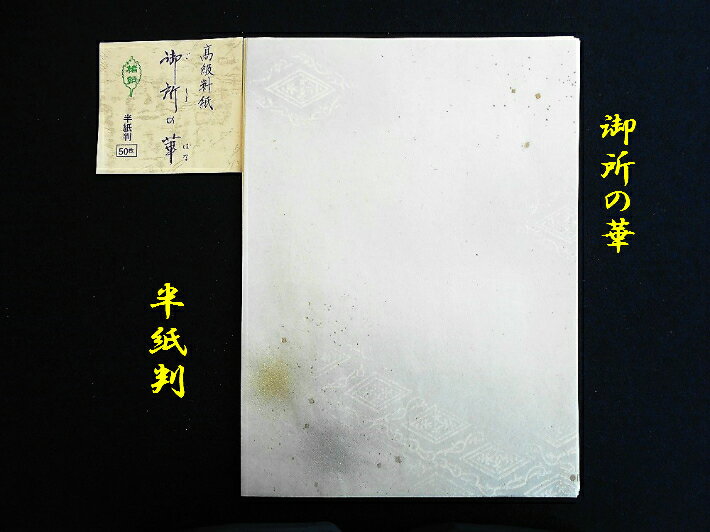 高級料紙
御所の華
ごしょ
はな
半紙判
50枚
御所の華
半紙判